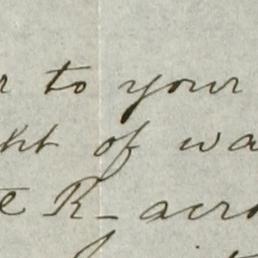 r to your
ht of wa
te R_ acro